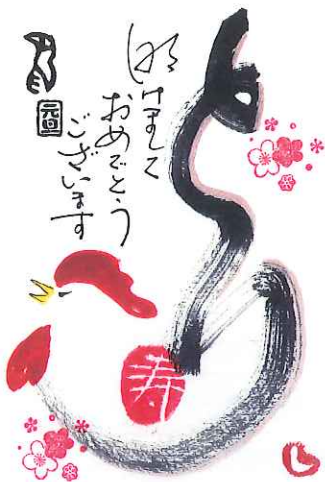 明けまして
おめでとう
ございます
元旦
寿